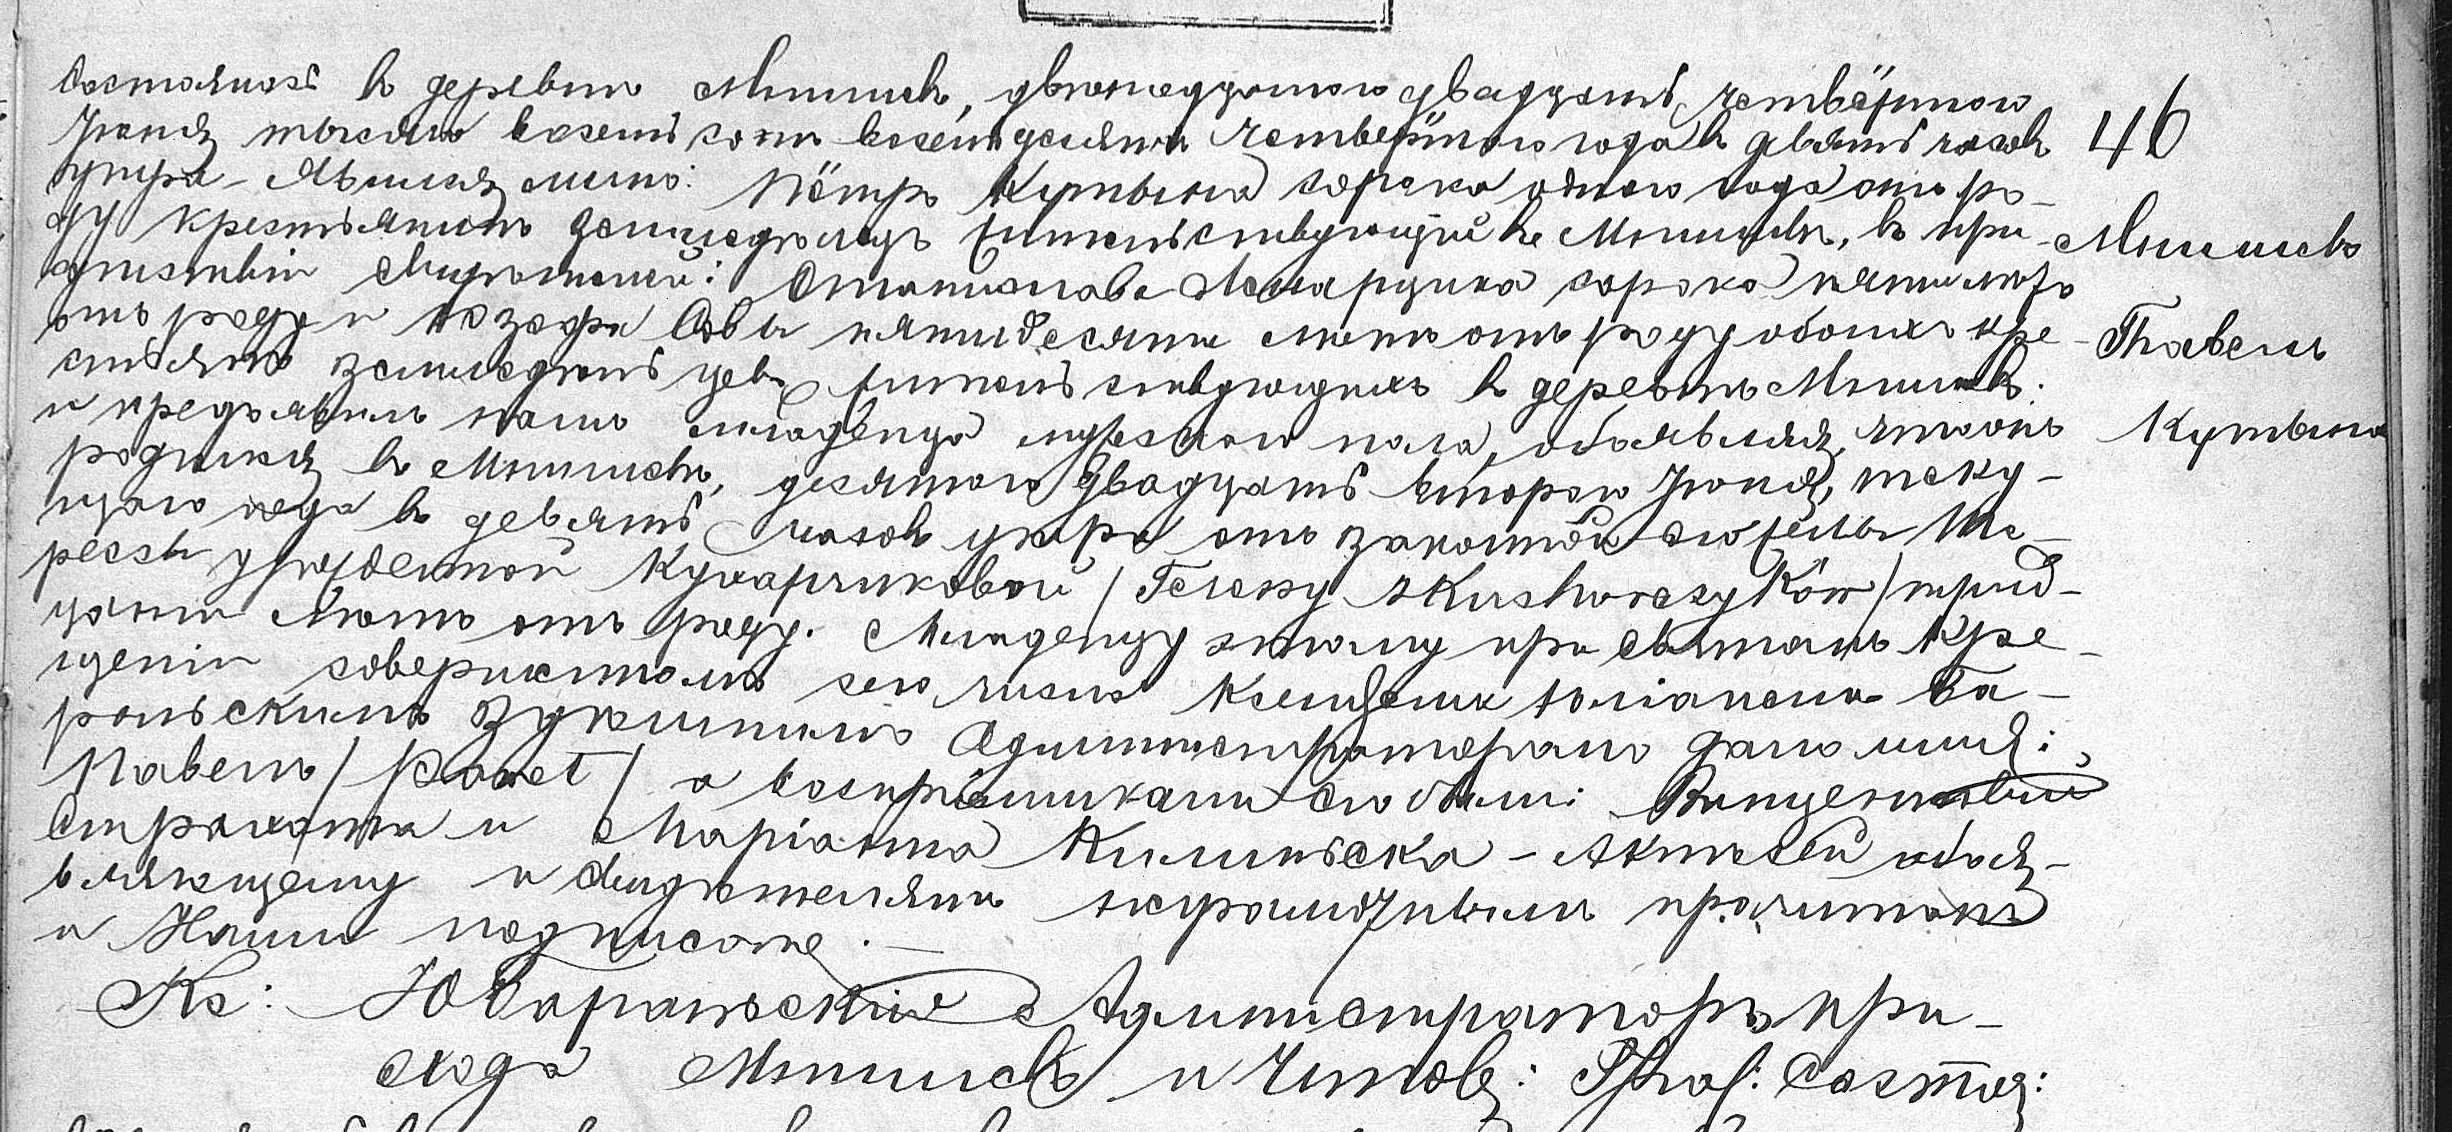 Состоялось въ деревнѣ Мнишекъ, двѣнадцатаго двадцать четвёртого
Іюня тысяча восемь сотъ восемдесятъ четвёртаго года въ девять часовъ
утра. Явился лично: Пётръ Кутыла сорока одного года отъ ро-
ду крестьянинъ земледѣлецъ жительствующій въ Мнишекъ, въ при-
сутствіи свидѣтелей: Станислава сорока пяти лѣтъ
отъ роду и Совы пятидесяти лѣтъ отъ роду обоихъ кре-
стьянъ земледѣльцевъ жительствующихъ въ деревнѣ Мнишекъ.
и предъявилъ намъ младенца мужескаго пола, объявляя, что онъ
родился въ Мнишекъ, десятого двадцать второго Іюня, теку-
щаго года въ девять часовъ утра отъ законной его жены Те-
рессы урожденной Кухарчиковой / Teressy z Kucharczyków / трид-
цати лѣтъ отъ роду. Младенцу этому при святомъ кре-
щеніи совершенномъ сего числа Ксендзомъ Юліаномъ Ба-
раньскимъ здѣшнимъ Администраторомъ дано имя:
Павелъ / Paweł / а воспріемниками его были: Винцентій
Страхота и Маріанна Килиньска - Актъ сей объя-
вляющему и свидѣтелямъ неграмотнымъ прочитанъ
и Нами подписанъ.
Кс: Ю Бараньскій Администраторъ при-
хода Мнишекъ и Чинов: Граж: Состоя:
46
Мнишекъ
Павелъ
Кутыла